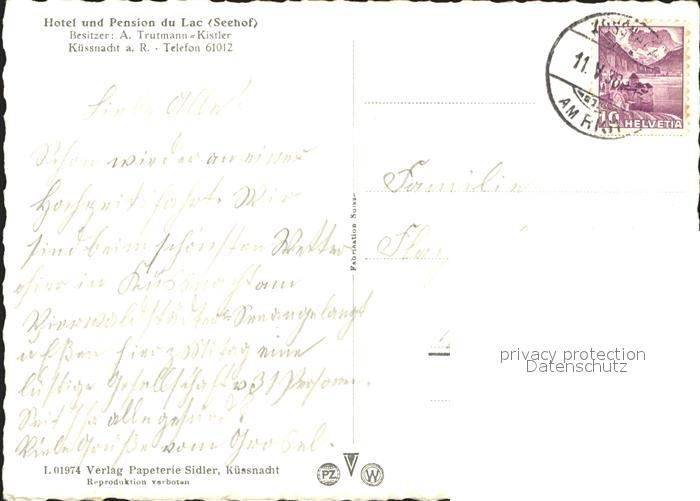 Hotel und Pension du Lac (Seehof)
Besitzer: A. Trutmann-Kistler
Küssnacht a. R. - Telefon 61012
11. V. 38
AM RIGI
10 HELVETIA
Liebe Alle!
Schon wieder an einer
Hochzeitsfahrt. Wir
sind beim schönsten Wetter
hier in Küssnacht am
Vierwaldstätter-See angelangt
u. essen hier z. Mittag eine
lustige Gesellschaft v. 31 Personen.
Seit Ihr alle gesund?
Viele Grüße vom Grosel.
Fabrication Suisse
Familie
privacy protection
Datenschutz
I. 01974 Verlag Papeterie Sidler, Küssnacht
Reproduktion verboten
PZ
W